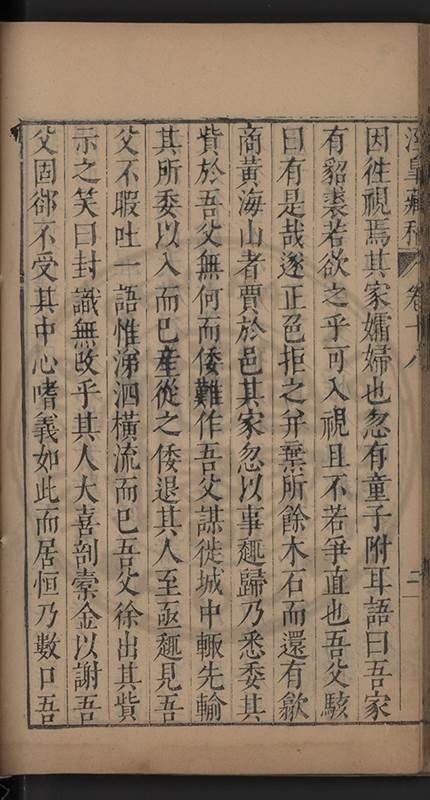 涇臯藏稿 卷十八 二
因徃視焉其家孀婦也忽有童子附耳語曰吾家
有貂裘若欲之乎可入視且不若爭直也吾父駭
曰有是哉遂正色拒之并棄所餘木石而還有歙
商黃海山者賈於邑其家忽以事趣歸乃悉委其
貲於吾父無何而倭難作吾父謀徙城中輒先輸
其所委以入而已產從之倭退其人至亟趣見吾
父不暇吐一語惟涕泗橫流而已吾父徐出其貲
示之笑曰封識無改乎其人大喜剖槖金以謝吾
父固郤不受其中心嗜義如此而居恒乃數口吾